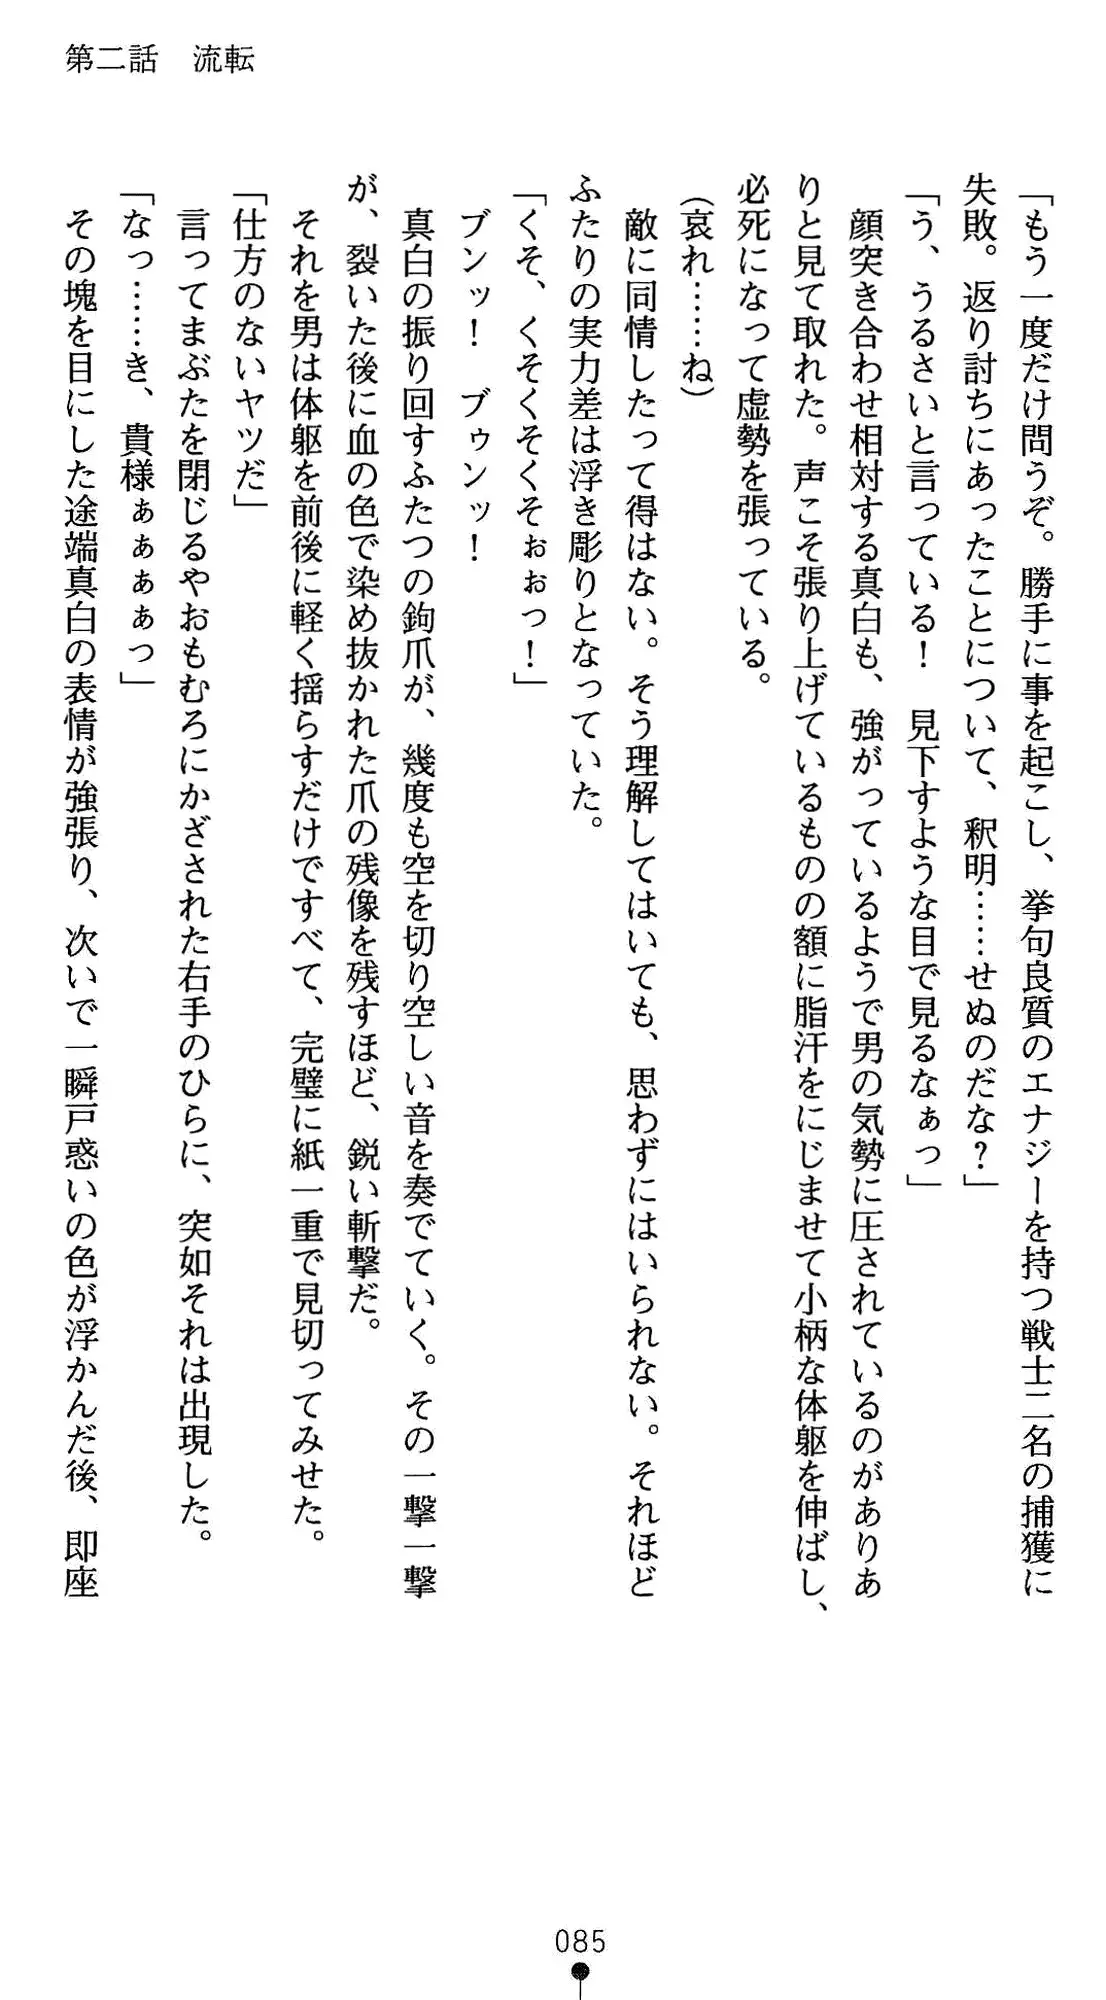 第二話　流転
「もう一度だけ問うぞ。勝手に事を起こし、挙句良質のエナジーを持つ戦士二名の捕獲に
失敗。返り討ちにあったことについて、釈明……せぬのだな？」
「う、うるさいと言っている！　見下すような目で見るなぁっ」
　顔突き合わせ相対する真白も、強がっているようで男の気勢に圧されているのがありあ
りと見て取れた。声こそ張り上げているものの額に脂汗をにじませて小柄な体躯を伸ばし、
必死になって虚勢を張っている。
（哀れ……ね）
　敵に同情したって得はない。そう理解してはいても、思わずにはいられない。それほど
ふたりの実力差は浮き彫りとなっていた。
「くそ、くそくそくそぉぉっ！」
　ブンッ！　ブゥンッ！
　真白の振り回すふたつの鉤爪が、幾度も空を切り空しい音を奏でていく。その一撃一撃
が、裂いた後に血の色で染め抜かれた爪の残像を残すほど、鋭い斬撃だ。
　それを男は体躯を前後に軽く揺らすだけですべて、完璧に紙一重で見切ってみせた。
「仕方のないヤツだ」
　言ってまぶたを閉じるやおもむろにかざされた右手のひらに、突如それは出現した。
「なっ……き、貴様ぁぁぁぁっ」
　その塊を目にした途端真白の表情が強張り、次いで一瞬戸惑いの色が浮かんだ後、即座
085